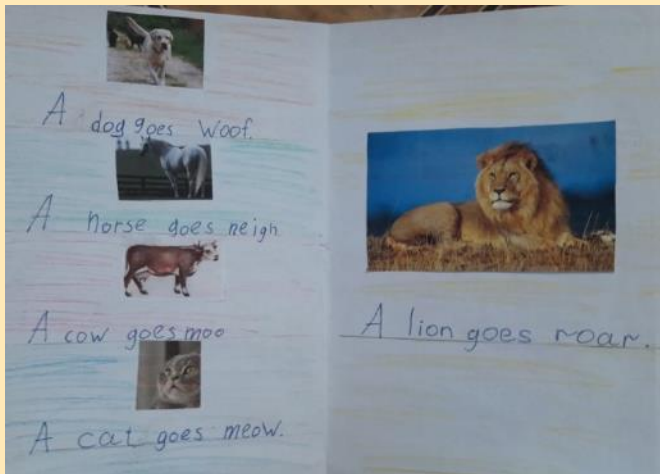 A dog goes woof.
A horse goes neigh
A cow goes moo
A cat goes meow.
A lion goes roar.